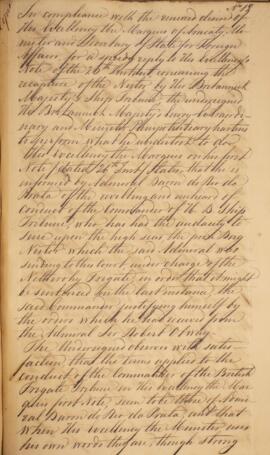 No 13
In compliance with the renewed desire of
His Excellency the Marquis of Aracaty, Mi-
nister and Secretary of State for Foreign
Affairs for a speedy reply to His Excellency's
Note of the 26 Instant concerning the
recapture of the Nestor by His Britannick
Majesty's Ship Fortune, the undersigned
His Britannick Majesty's Envoy Extraordi-
nary and Minister Plenipotentiary hastens
to perform what he undertook to do
His Excellency the Marquis in his first
Note, dated 26 Inst states, that he is
informed by Admiral Baron do Rio da
Prata of the and unheard of
conduct of the Commander of H. B. Ship
Fortune, who has had the audacity to
seize upon the high seas the prize Brig
Nestor which the said Admiral was
sending to this Court under charge of the
Netherohy Frigate in order that it might
be sentenced in the last instance, the
said Commander justifying himself by
the orders which he had received from
the Admiral Sir Robert Otway.
The Undersigned observes with satis-
faction that the terms applied to the
conduct of the Commander of the British
Frigate Fortune in His Excellency the Mar-
quis' first Note, seem to be those of Admi-
ral Baron do Rio da Prata, and that
when His Excellency the Minister uses
his own words they are, though strong